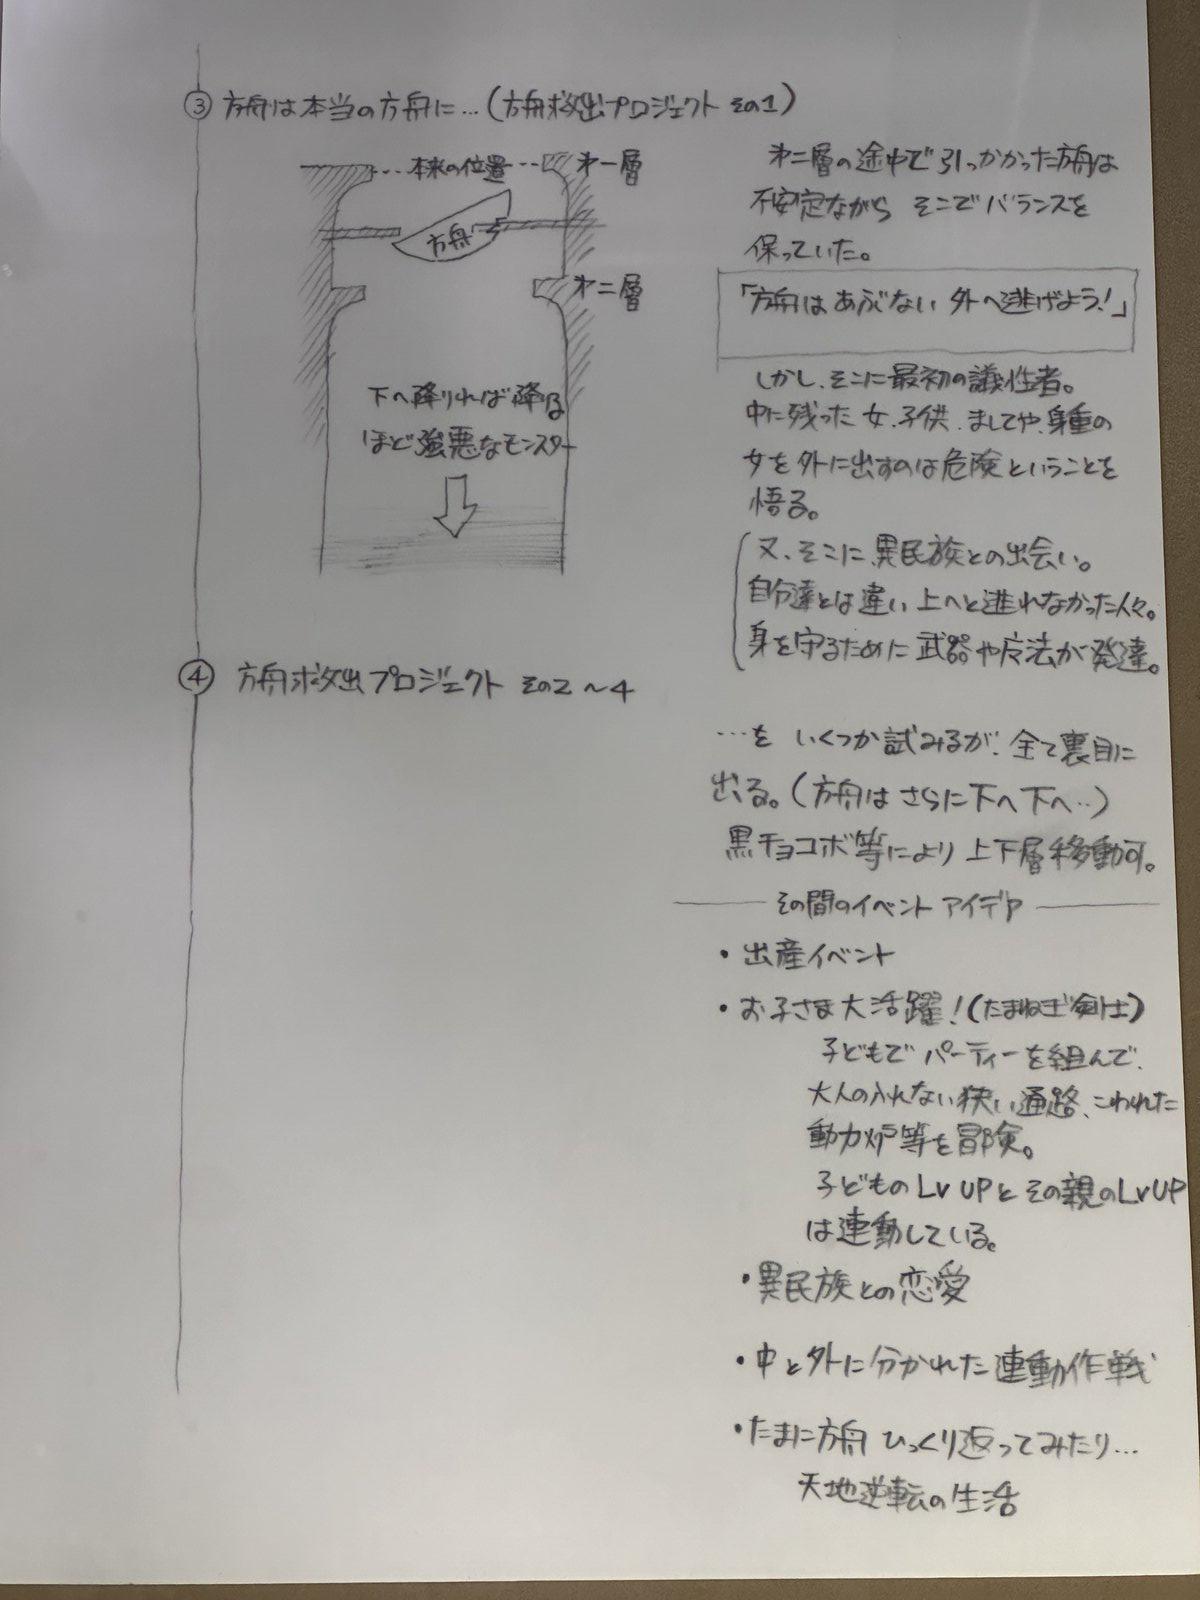 ③ 方舟は本当の方舟に…(方舟救出プロジェクト その1)
…本来の位置…
才一層
方舟
才二層
下へ降りれば降りる
ほど強悪なモンスター
才二層の途中で引っかかった方舟は
不安定ながら そこでバランスを
保っていた。
「方舟はあぶない 外へ逃げよう!」
しかし、そこに最初の議性者。
中に残った女、子供、ましてや、身重の
女を外に出すのは危険ということを
悟る。
又、そこに、異民族との出会い。
自分達とは違い上へと逃れなかった人々。
身を守るために武器や魔法が発達。
④ 方舟救出プロジェクト その2〜4
…を いくつか試みるが、全て裏目に
出る。(方舟はさらに下へ下へ‥)
黒チョコボ等により上下層移動可。
その間のイベント アイデア
・出産イベント
・お子さま大活躍!(たまねぎ剣士)
子どもでパーティーを組んで、
大人のふれない狭い通路、こわれた
動力炉等を冒険。
子どものLv UPとその親のLv UP
は連動している。
・異民族との恋愛
・中と外に分かれた連動作戦
・たまに方舟ひっくり返ってみたり…
天地逆転の生活